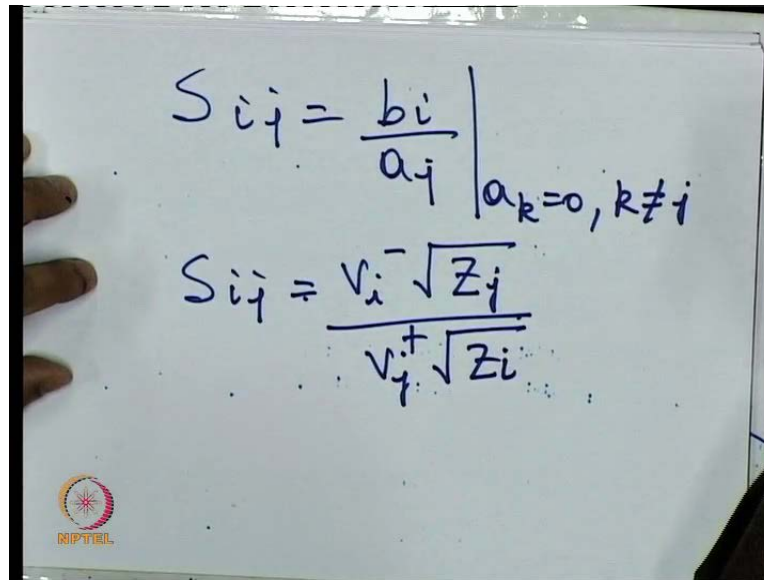 Sij = bi/aj | ak=0, k≠j
Sij = Vi⁻√Zj / Vj⁺√Zi
NPTEL